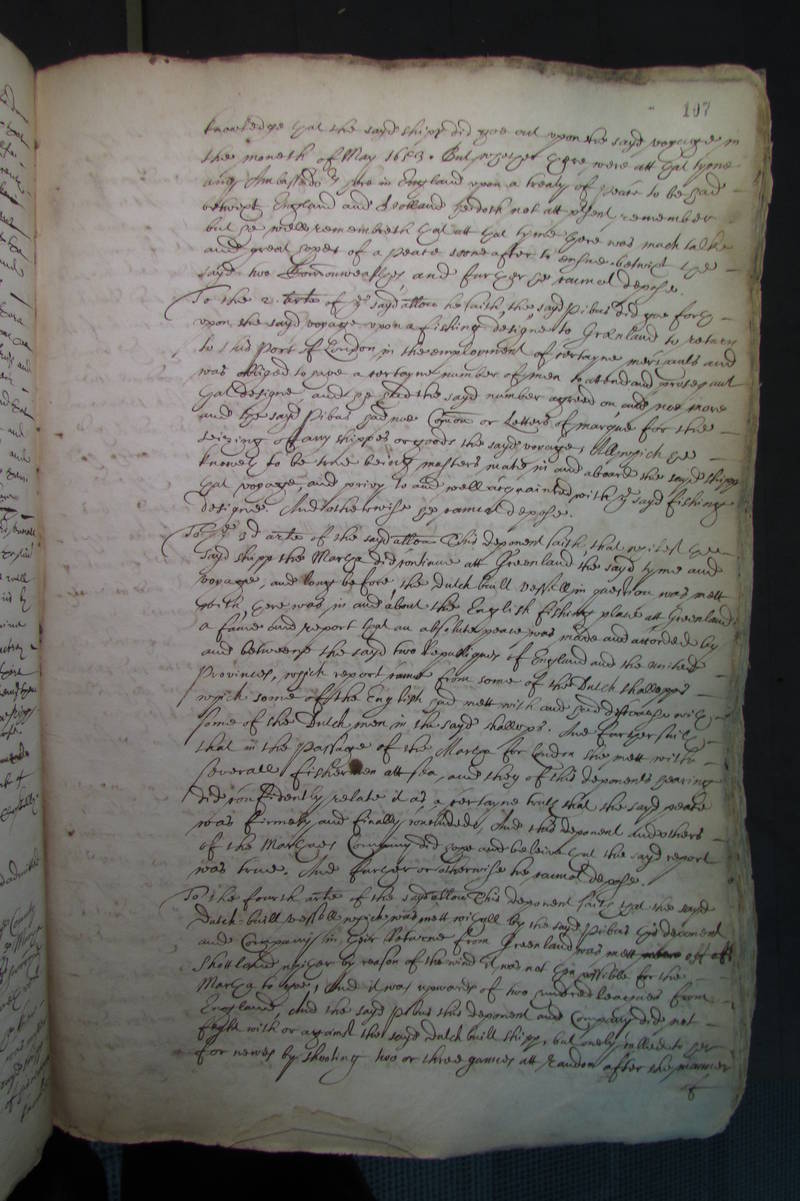 107
knowledge that the sayd shipp did goe out upon the sayd voyage in
the moneth of May 1653. But whether there were att that tyme
any Ambassado:rs here in England upon a treaty of peace to be had
betwixt England and Holland hee doth not att present remember
but he well remembreth that att that tyme there was much talke
and great hopes of a peace soone after to ensue betwixt the
sayd two Commonwealthes, and further he cannot depose.
To the 2. arte of y:e sayd allon he saith, the sayd Pibus did goe forth
upon the sayd voyage upon a fishing designe to Grenland to returne
to this Port of London in the employment of certayne merchants and
was obliged to have a certayne number of men to attend and prosecute
that designe, and he had the sayd number agreed on and noe more
and the sayd Pibus had noe Comon or Letters of marque for the
seizing of any shippes or goods the sayd voyage, All which he
knowes to be true being masters mate in and aboard the sayd shipp
that voyage, and privy to and well acquainted with y:e sayd fishing
designe And otherwise he cannot depose.
To y:e 3:d arte of the sayd allon This deponent saith, that whilest the
sayd shipp the Martha did continue att Greenland the sayd tyme and
voyage, and long before the Dutch built vessell in question was mett
with, there was in and about the English fishing place att Greenland
a fame and report that an absolute peace was made and accorded by
and betweene the sayd two Republiques of England and the united
Provinces, which report came from some of the Dutch shallopps
which some of the English had mett with and had discourse with
some of the Dutch men in the sayd shallops. And further saith
that in the passage of the Martha for London she mett with
severall fishermen att sea, and they of this deponents hearing
did confidently relate it as a certayne truth that the sayd peace
was firmely and finally concluded, And this deponent and others
of the Marthaes Company did hope and beleive that the sayd report
was true. And further or otherwise he cannot depose.
To the fourth arte of the sayd allon This deponent saith that the sayd
Dutch-built vessell which was mett withall by the sayd Pibus this deponent
and Company in their Returne from Greenland was mett off of
Shottland whither by reason of the wind it was not then possible for the
Martha to and it was upwards of two hundred leagues from
England, And the sayd Pibus this deponent and Company did not
fight with or against the sayd Dutch built shipp, but onely called to her
for newes by shooting two or three gunnes att random after the manner